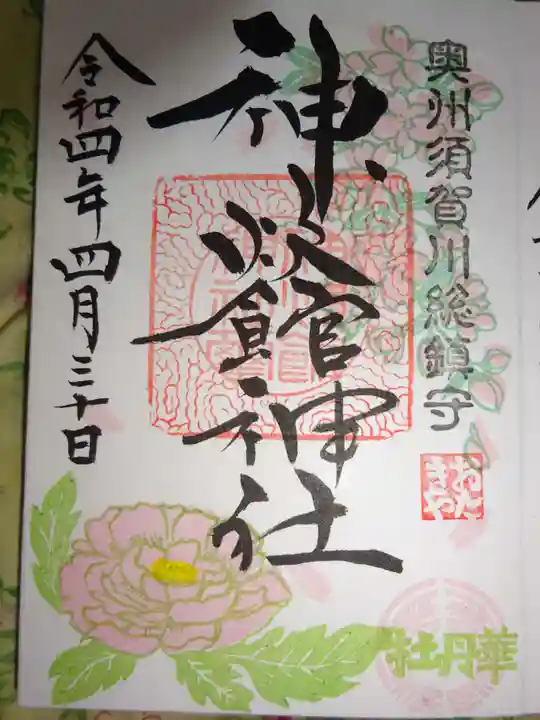 奥州須賀川総鎮守
おたきや
神炊館神社
令和四年四月三十日
牡丹華